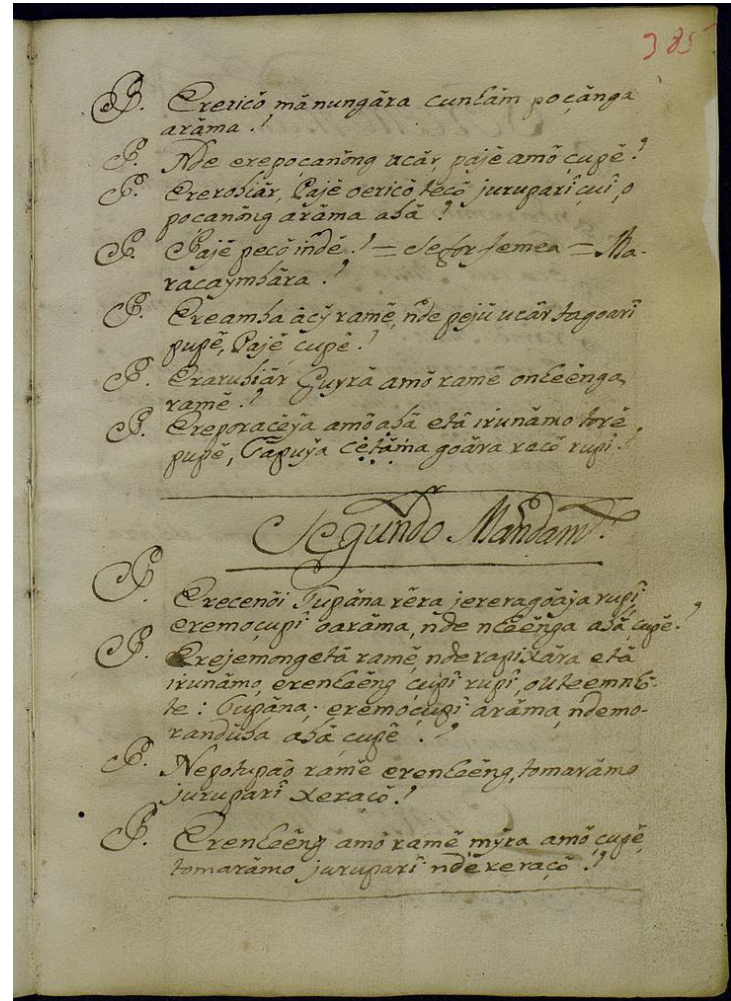 385
P. Erericõ mãnungára cunhãm poçánga
aráma.?
P. Nde erepoçanõng ucár, pajé amõ çupé?
P. Ererobiár, Pajé oericõ tecõ jurupari çuí, o
poçanõng aráma abá?
P. Pajé pecõ indé.? = Se for femea = Ma-
rácaymbára.?
P. Ereamba ácÿ ramé, nde pejũ ucár tagoarî
pupé, Pajé çupé.?
P. Erarubiár Guyrá amõ ramé onheénga
ramé.?
P. Ereporaceÿa amõ abá etá irunámo toré
pupé, Tapuÿa cetáma goára racõ rupî.?
Segundo Mandamto.
P. Erecenõi Tupána réra jereragoáÿa rupî
eremoçupî oaráma, nde nheénga abá çupé.?
P. Erejemongetá ramé, nde rapixára etá
irunámo, erenheéng çupî rupî, outeemnhé-
te: Tupána; eremoçupi aráma, ndemo-
randúba abá çupé.?
P. Nepotupáo ramé erenheéng, tomarámo
jurupari xeraçõ.?
P. Erenheéng amõ ramé mÿra amõ çupé
tomarámo jurupari ndéreraçõ.?